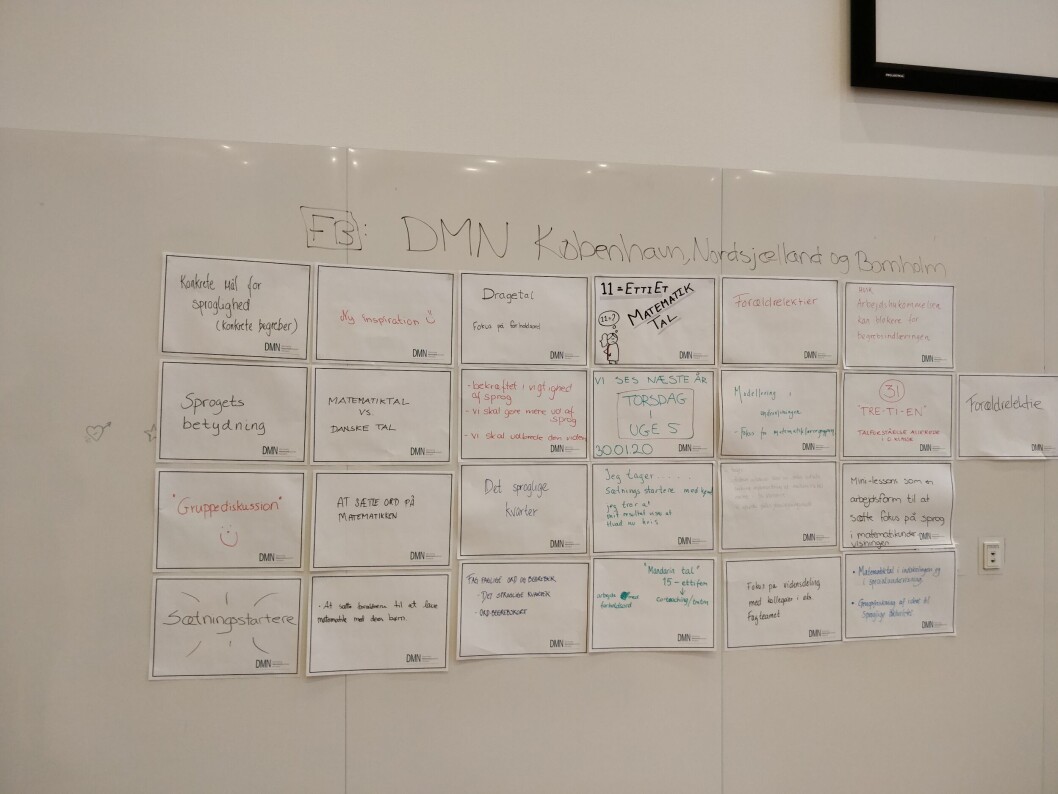 FB: DMN København, Nordsjælland og Bornholm
Konkrete mål for
sproglighed
(konkrete begreber)
DMN
Ny inspiration
DMN
Dragetal
Fokus på forholdsord
DMN
11 = ETTIET
MATEMATIK
TAL
11=?
DMN
Forældrelektier
DMN
Arbejdshukommelsen
kan blokere for
begrebsindlæringen
DMN
Sprogets
betydning
DMN
MATEMATIKTAL
VS.
DANSKE TAL
DMN
- bekræftet i vigtighed
af sprog
- Vi skal gøre mere ud af
sprog
- Vi skal udbrede den viden
VI SES NÆSTE ÅR
TORSDAG
I
UGE 5
300120
DMN
Modellering i
undervisningen
- Fokus for
DMN
31
"TRE-TI-EN"
TALFORSTÅELSE ALLEREDE
I 0 KLASSE
DMN
Forældrelektie
DMN
"Gruppediskussion"
DMN
AT SÆTTE ORD PÅ
MATEMATIKKEN
DMN
Det sproglige
kvarter
DMN
Jeg tager......
Sætnings startere med
jeg tror at
mit resultat viser at
Hvad nu hvis
DMN
DMN
Mini-lessons som en
arbejdsform til at
sætte fokus på sprog
i matematikunder
visningen
DMN
Sætningsstartere
DMN
- At sætte forældrene til at lave
matematik med deres børn.
DMN
FAG FAGLIGE ORD OG BEGREBER
- DET SPROGLIGE KVARTER
- ORD/BEGREBSKORT
DMN
"Mandarin tal"
15 - ettifem
arbejde med
forholdsord
co-teaching/
DMN
Fokus på vidensdeling
med kollegaer i
Fagteamet
DMN
• Matematiktal i indskolingen og
i specialundervisning
sproglige aktiviteter
DMN